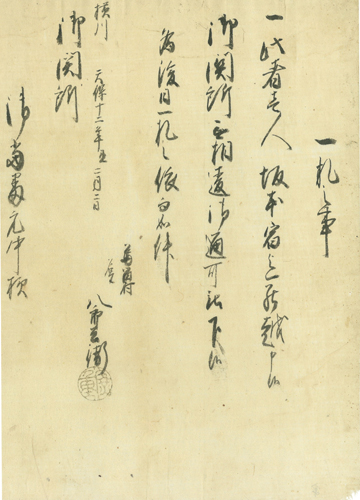 一札之事
一此者壱人坂本宿迄罷越申候
御関所無相違御通可被下候
為後日一札之依而如件
天保十二年丑二月二日
八郎兵衛
横川
御関所
御当番
元中様